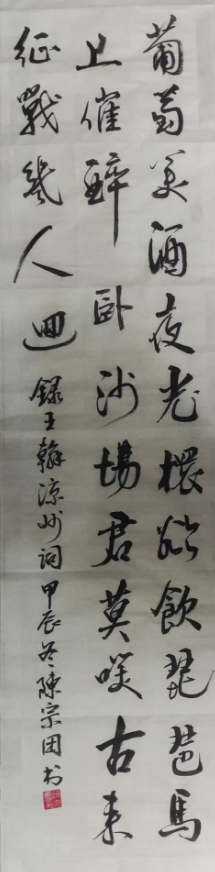 葡萄美酒夜光桮欲飲琵琶馬
上催醉臥沙場君莫咲古来
征戰幾人迴 録王翰涼州詞 甲辰冬陳宗书